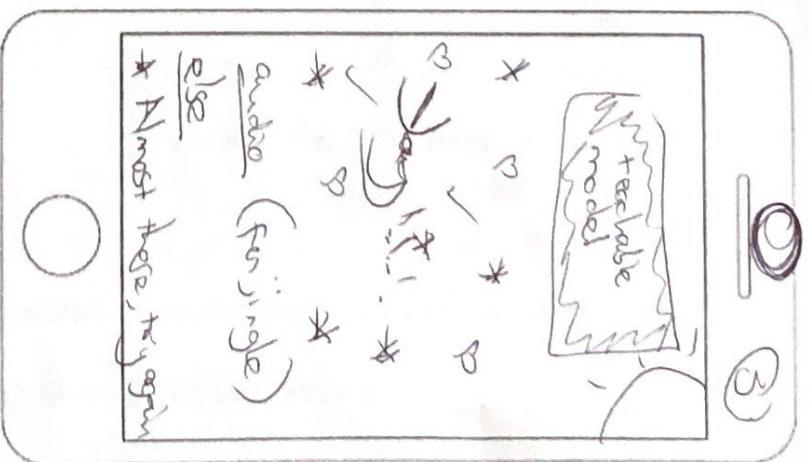 3
teachable
model
Yay
audio (fun jingle)
else
* Almost there, try again